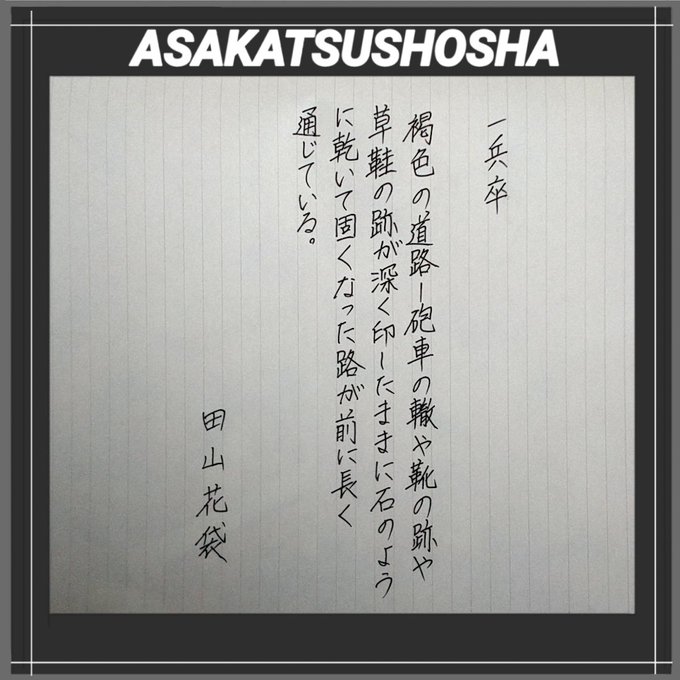 ASAKATSUSHOSHA
一兵卒
褐色の道路ー砲車の轍や靴の跡や
草鞋の跡が深く印したままに石のよう
に乾いて固くなった路が前に長く
通じている。
田山花袋